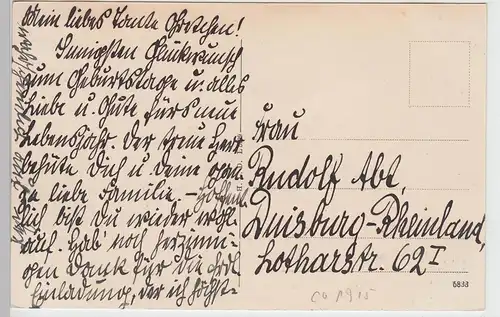 Mein liebes Tante Gretchen!
Innigsten Glückwunsch
zum Geburtstage u. alles
Liebe u. Gute fürs neue
Lebensjahr. Der treue Herr
behüte Dich u. deine gan-
ze liebe Familie. – Hoffent-
lich bist Du wieder wohl
auf. Hab' noch herzinni-
gen Dank für die frdl.
Einladung, der ich höchst-
Frau
Rudolf Abt,
Duisburg-Rheinland,
Lotharstr. 62 I
ca 1915
6838